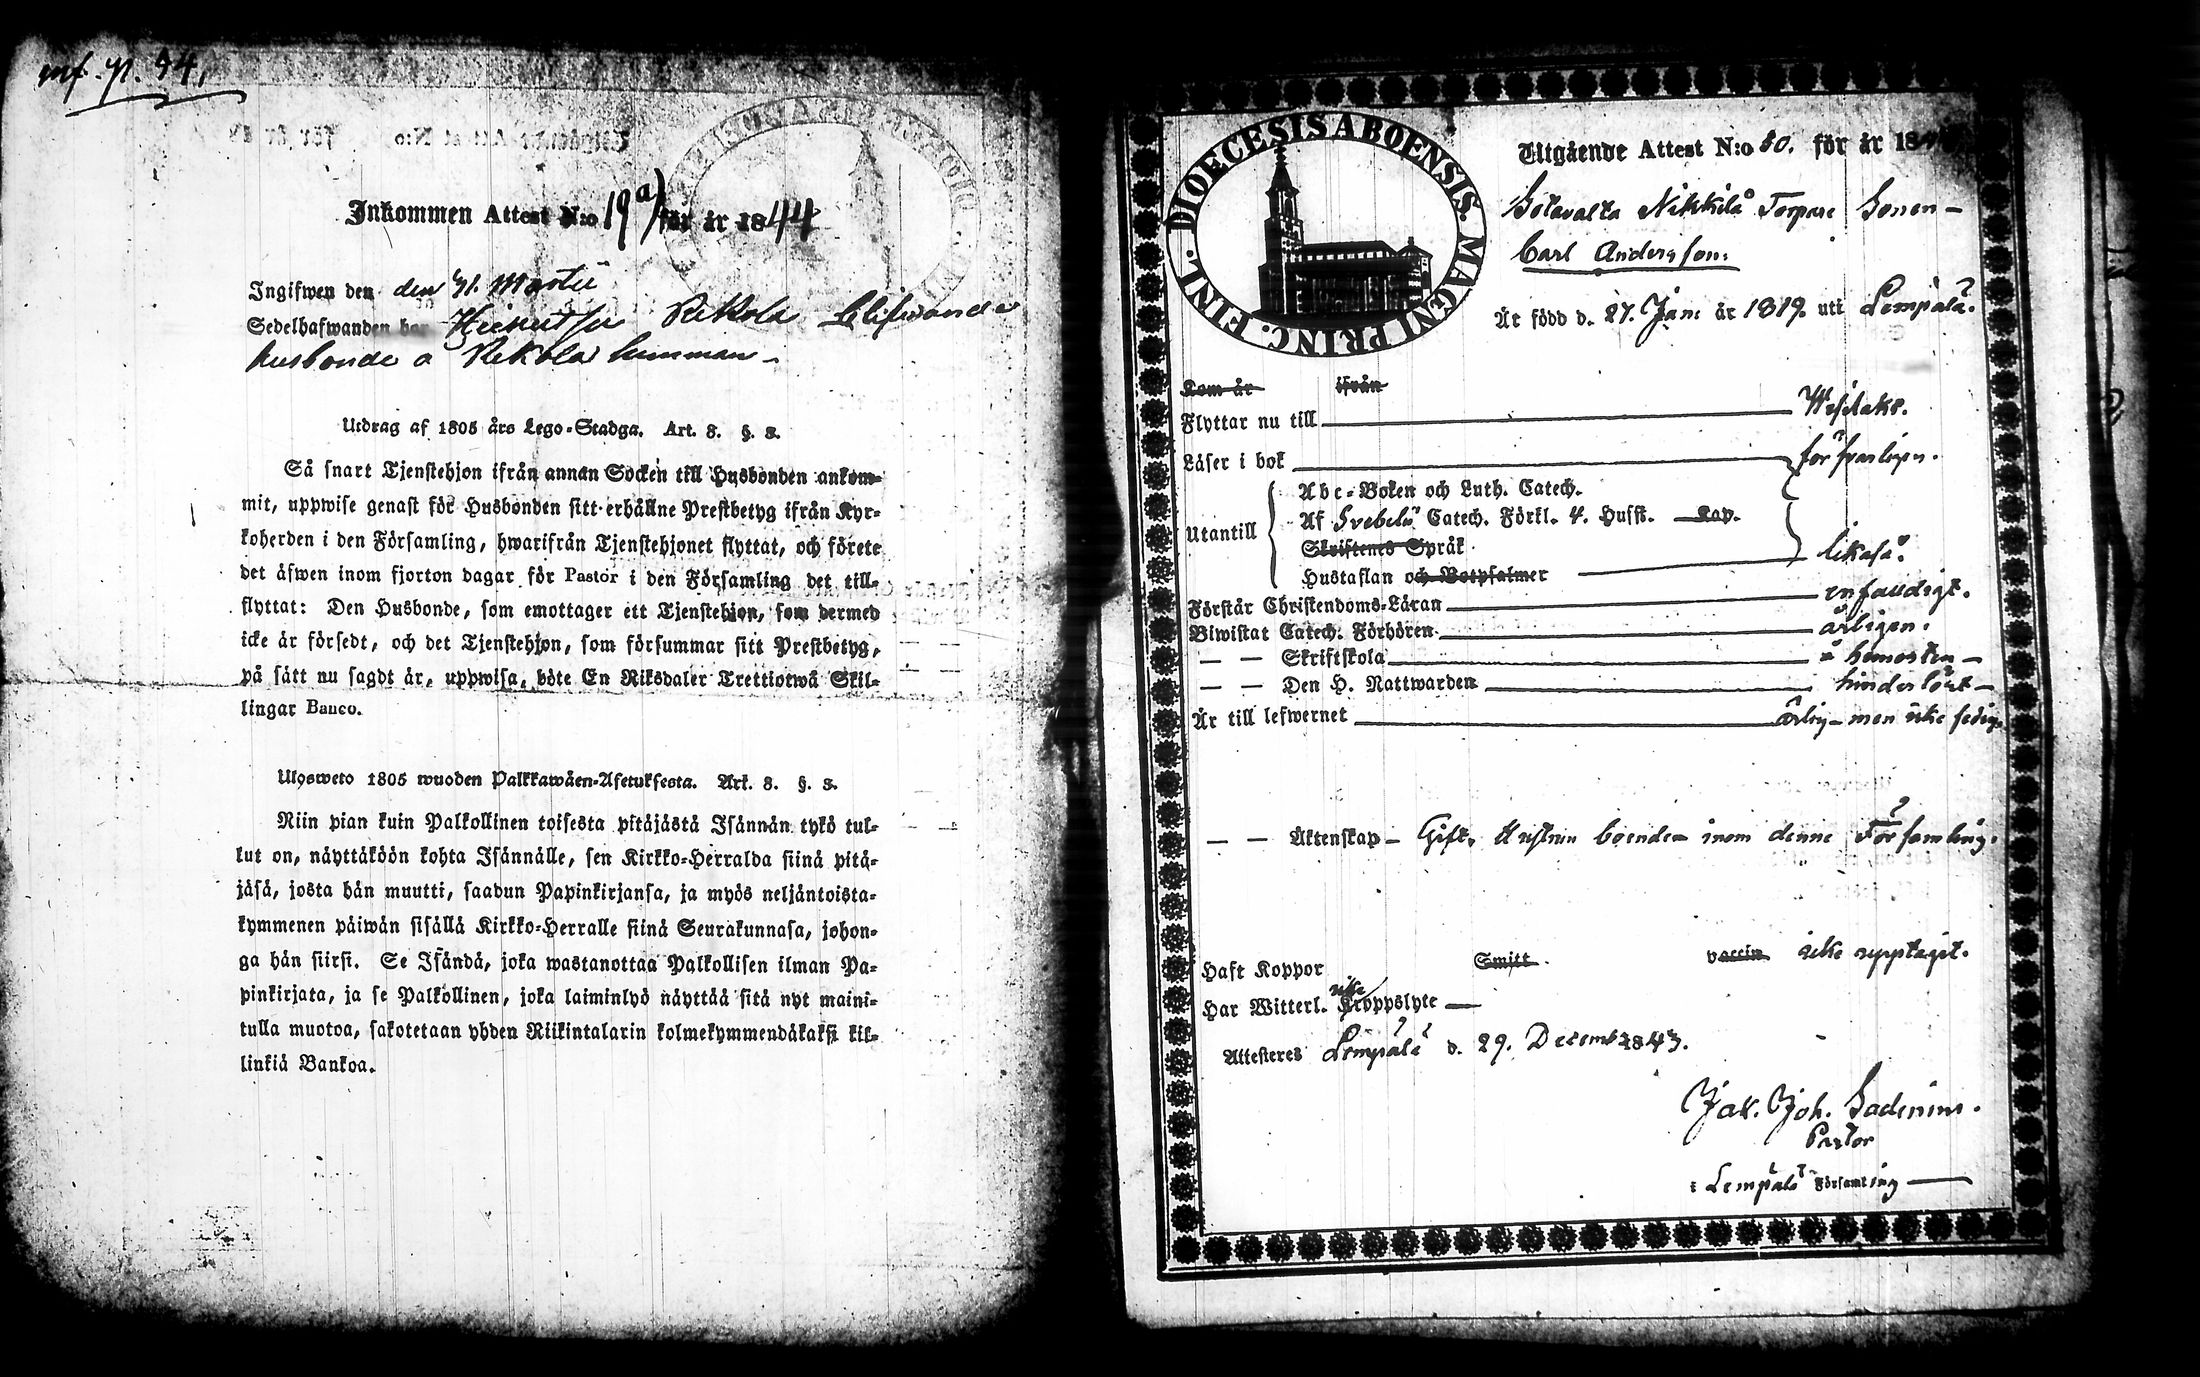 Inkommen Attest N:o 19 a) för år 1844
Ingifwen den den 41. Martii
Sedelhafwanden har Rekola blifwande
husbonde a Rekola hemman –
Utdrag af 1805 års Lego-Stadga. Art. 8. §. 3.
Så snart Tjenstehjon ifrån annan Socken till Husbonden ankom-
mit, uppwise genast för Husbonden sitt erhållne Prestbetyg ifrån Kyr-
koherden i den Församling, hwarifrån Tjenstehjonet flyttat, och förete
det äfwen inom fjorton dagar för Pastor i den Församling det till-
flyttat: Den Husbonde, som emottager ett Tjenstehjon, som dermed
icke är försedt, och det Tjenstehjon, som försummar sitt Prestbetyg,
på sätt nu sagdt är, uppwisa, böte En Riksdaler Trettiotwå Skil-
lingar Banco.
Ulosweto 1805 wuoden Palkkawäen-Asetuksesta. Art. 8. §. 3.
Niin pian kuin Palkollinen toisesta pitäjästä Isännän tykö tul-
lut on, näyttäköön kohta Isännälle, sen Kirkko-Herralda siinä pitä-
jäsä, josta hän muutti, saadun Papinkirjansa, ja myös neljäntoista-
kymmenen päiwän sisällä Kirkko-Herralle siinä Seurakunnasa, johon-
ga hän siirsi. Se Isändä, joka wastanottaa Palkollisen ilman Pa-
pinkirjata, ja se Palkollinen, joka laiminlyö näyttää sitä nyt maini-
tulla muotoa, sakotetaan yhden Riikintalarin kolmekymmendäkaksi kil-
linkiä Bankoa.
DIOECESIS ABOENSIS. MAGNI PRINC. FINL.
Utgående Attest N:o 80. för år 18
Sotavalta Nikkilä Torpare Sonen –
Carl Andersson:
Är född d. 27. Jan: år 1819. uti Lempälä.
Kom år ifrån
Flyttar nu till Wesilaks.
Läser i bok försvarligen.
Utantill
Abc-Boken och Luth. Catech.
Af Svebelii Catech. Förkl. 4. Husst. Kap.
Skriftenes Språk
Hustaflan och Botpsalmer likaså.
Förstår Christendoms-Läran enfaldigt.
Biwistat Catech. Förhören årligen.
— — Skriftskola å hemorten –
— — Den H. Nattwarden hinderlöst –
Är till lefwernet ärlig – men icke sedig.
— — Äktenskap – Gift, Hustrun boende inom denne Församling.
Haft Koppor Smitt vaccin icke upptagit.
Har Witterl. icke Kroppslyte —
Attesteras Lempälä d. 29. Decemb 1843.
Jak. Joh. Sadenius.
Pastor
i Lempälä Församling —